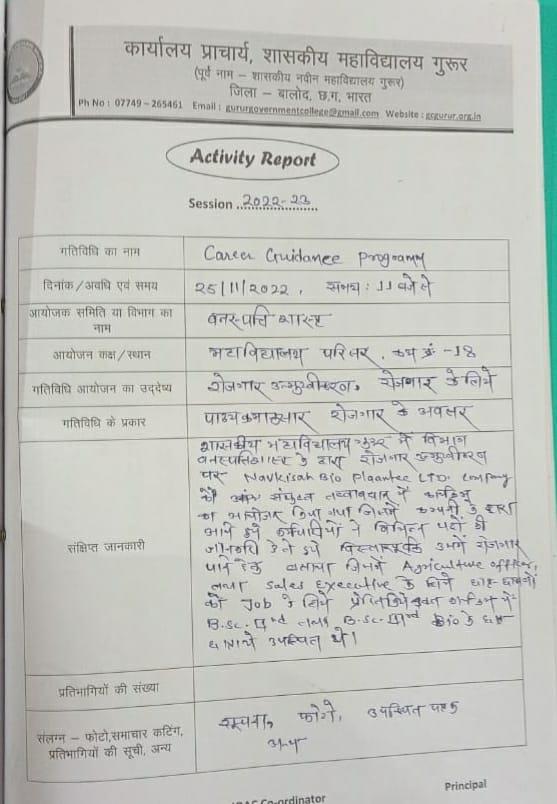 कार्यालय प्राचार्य, शासकीय महाविद्यालय गुरूर
(पूर्व नाम – शासकीय नवीन महाविद्यालय गुरूर)
जिला – बालोद, छ.ग, भारत
Ph No : 07749 – 265461 Email : gururgovernmentcollege@gmail.com Website : gcgurur.org.in
Activity Report
Session ..2022-23..
गतिविधि का नाम
Career Guidance Programm
दिनांक/अवधि एवं समय
25/11/2022 , समय : 11 बजे से
आयोजक समिति या विभाग का
नाम
वनस्पति शास्त्र
आयोजन कक्ष/स्थान
महाविद्यालय परिसर, कक्ष क्रं -18
गतिविधि आयोजन का उद्देष्य
रोजगार उन्मुखीकरण, रोजगार के लिये
गतिविधि के प्रकार
पाठ्यक्रमानुसार रोजगार के अवसर
संक्षिप्त जानकारी
शासकीय महाविद्यालय गुरूर में विभाग
वनस्पतिशास्त्र के द्वारा रोजगार उन्मुखीकरण
पर Navkisan Bio Plaantec LTD. Company
के संयुक्त तत्वावधान में
का आयोजन किया गया जिसमें कम्पनी के द्वारा
आये हुये कर्मचारियों ने विभिन्न पदों की
जानकारी देते हुये विस्तारपूर्वक उसमें रोजगार
पाने हेतु बताया जिसमें Agriculture officer,
तथा Sales Executive के लिये छात्र-छात्राओं
को Job के लिये
B.Sc. तथा B.Sc. Bio के छात्र
छात्रायें उपस्थित थे।
प्रतिभागियों की संख्या
संलग्न – फोटो,समाचार कटिंग,
प्रतिभागियों की सूची, अन्य
सूचना, फोटो, उपस्थित पत्रक
अन्य
Co-ordinator
Principal